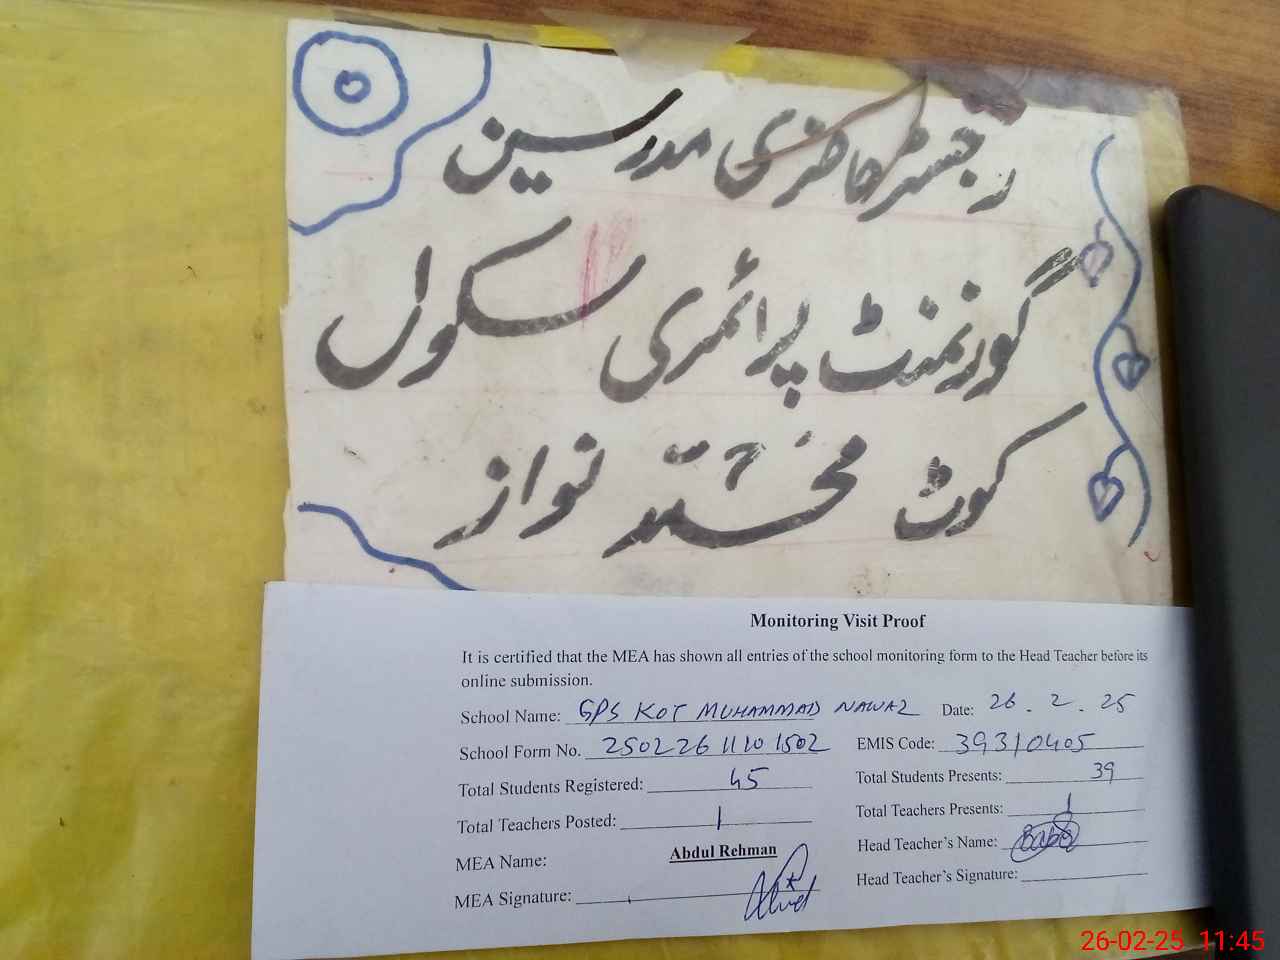 رجسٹر حاضری مدرسین
گورنمنٹ پرائمری سکول
کوٹ محمد نواز
Monitoring Visit Proof
It is certified that the MEA has shown all entries of the school monitoring form to the Head Teacher before its
online submission.
School Name: GPS KOT MUHAMMAD NAWAZ Date: 26.2.25
School Form No. 250226 1110 1502 EMIS Code: 39310405
Total Students Registered: 45 Total Students Presents: 39
Total Teachers Posted: 1 Total Teachers Presents: 1
MEA Name: Abdul Rehman Head Teacher's Name:
MEA Signature: Head Teacher's Signature:
26-02-25 11:45